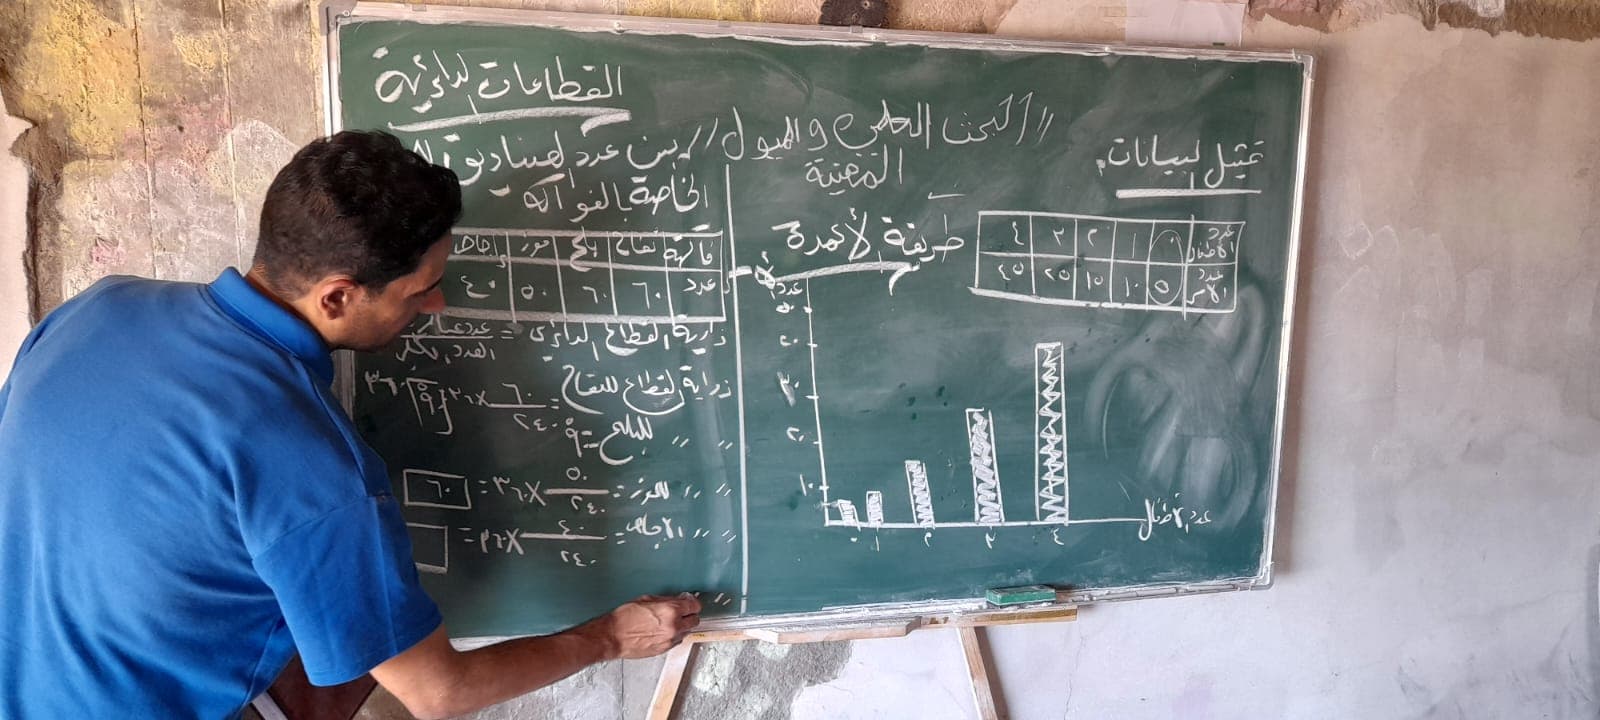 القطاعات الدائرية
// البحث العلمي والميول //
المهنية
تمثيل البيانات
عدد الأطفال ٠ ١ ٢ ٣ ٤
عدد الأسر ٥ ١٠ ١٥ ٢٥ ٤٥
طريقة الأعمدة
عدد
٥٠
٤٠
٣٠
٢٠
١٠
٠ ١ ٢ ٣ ٤
عدد الأطفال
يبين عدد الصناديق
الخاصة بالفواكه
فاكهة تفاح بلح موز إجاص
عدد ٦٠ ٦٠ ٥٠ ٤٠
زاوية القطاع الدائري =
العدد الكلي
زاوية القطاع للتفاح = ٦٠/٢٤٠ × ٣٦٠ = ٩٠
// // للبلح = ٩٠
// // للموز = ٥٠/٢٤٠ × ٣٦٠ =
// // الإجاص = ٤٠/٢٤٠ × ٣٦٠ =
// //